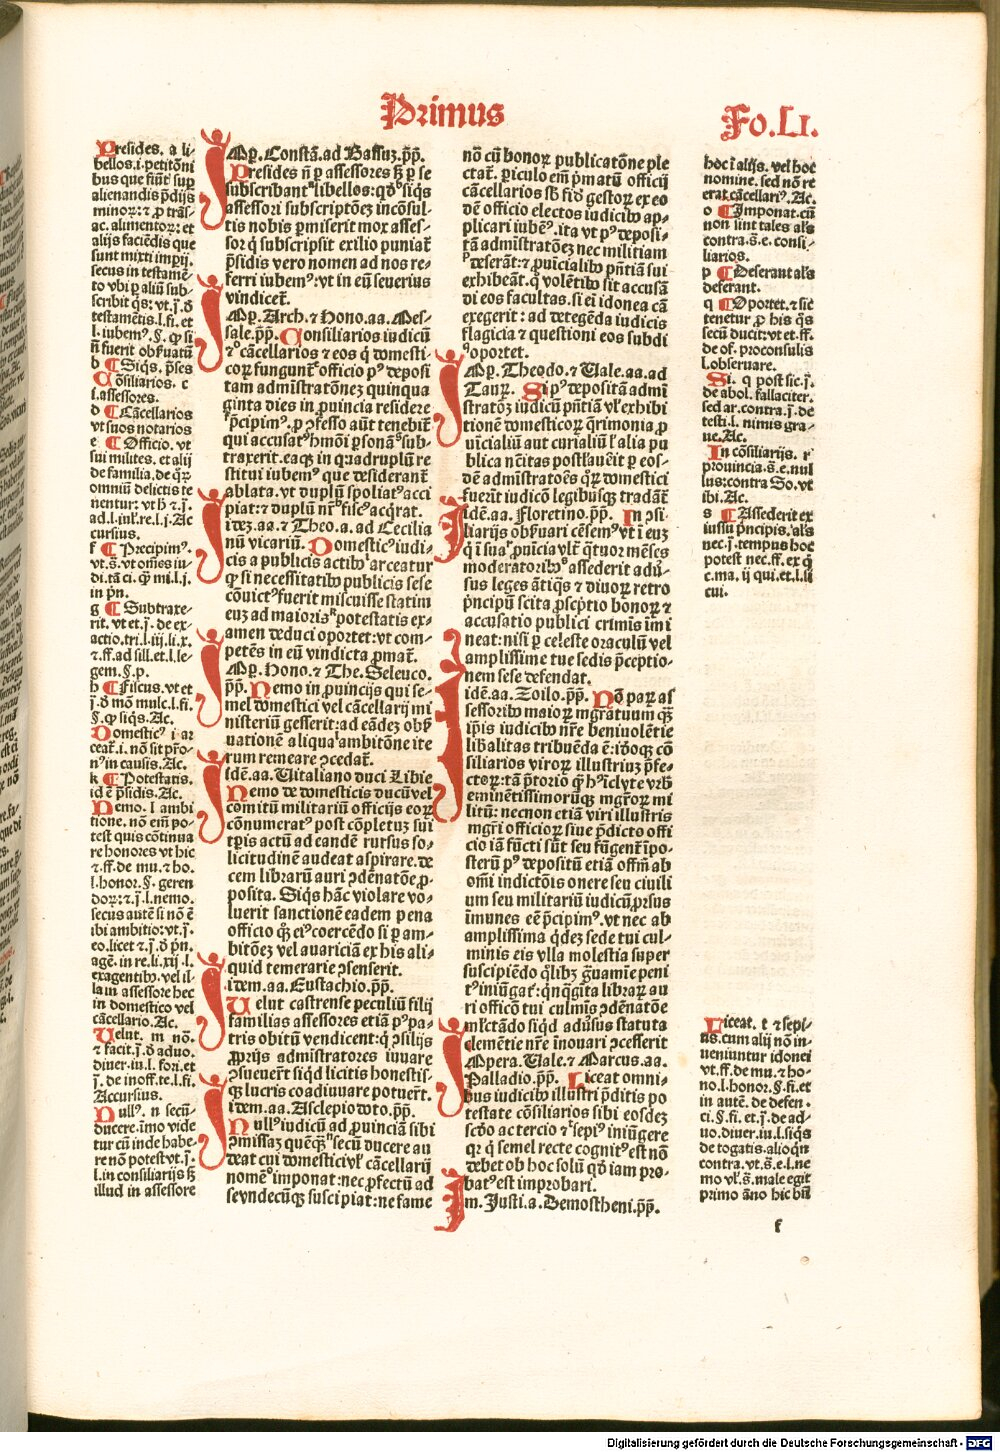 Primus
Fo.LI.
Presides. a li-
bellos.i.petitõni
bus que fiũt̃ suꝑ
alienandis p̃dijs
minoꝝ:⁊ ꝓ trãs-
ac. alimentoꝝ:et
alijs faciẽdis que
sunt mixti imperij.
secus in testamẽ-
to vbi ꝑ aliũ sub-
scribit
testamẽtis.l.fi.et
l.iubemꝰ.§.
b ¶ Siqs. p̃ses
Cõsiliarios. c
i.assessores.
d ¶ Cãcellarios
vt suos notarios
e ¶ Officio. vt
sui milites. et alij
de familia.de qꝝ
omniũ delictis te
nentur:
cursius.
f ¶ Precipimꝰ.
vt.s̃.vt om̃es iu-
di.tã ci. q̃ mi.l.j.
in pñ.
g ¶ Subtraxe-
rit. vt et.j̃. de ex-
actio.tri.l.iij.li.x.
⁊.ff.ad sill.et.l.le-
gem.§.p.
h ¶ Fiscus.vt et
j̃.d̃ mõ mulc.l.fi.
§.q̃ siqs.Ac.
Domesticꝰ i ar
ceat̃.i.nõ sit p̃ro-
nꝰ in causis.Ac.
k ¶ Potestatis.
id ẽ p̃sidis.Ac.
Nemo. l ambi
tione. nõ em̃ po-
test quis cõtinua
re honores vt hic
⁊.ff.de mu.⁊ ho.
l.honor.§.geren
doꝝ:⁊.j̃.l.nemo.
secus autẽ si nõ ẽ
ibi ambitio:vt.j̃.
eo.licet ⁊.j̃.d̃ pñ.
agẽ.in re.li.xij.l.
exagentibꝰ.vel il-
la in assessore hec
in domestico vel
cãcellario.Ac.
Velut. m nõ.
⁊ facit.j̃.d̃ aduo.
diuer.iu.l.fori.et
j̃.de inoff.te.l.fi.
Accursius.
Nullꝰ. n secũ-
ducere.imo vide
tur cũ inde habe-
re nõ potest vt.j̃.
l.in consiliarijs sꝫ
illud in assessore
IMp̃.Constã.ad Bassuꝫ.p̃p̃.
Presides nõ ꝑ assessores sꝫ ꝑ se
subscribant libellos:qd̓ siqs
assessori subscriptõeꝫ incõsul-
tis nobis ꝑmiserit mox asses-
sor q̃ subscripsit exilio puniat̃
p̃sidis vero nomen ad nos re-
ferri iubemꝰ:vt in eũ seuerius
vindicet̃.
IMp̃.Arch.⁊ Hono.aa.Mes-
sale.p̃p̃. Consiliarios iudicũ
⁊ cãcellarios ⁊ eos q̃ domesti-
coꝝ fungunt̃ officio pꝰ deposi
tam admĩstratõneꝫ quinqua
ginta dies in ꝓuincia residere
p̃cipimꝰ.ꝓ ꝯfesso aũt tenebit̃
qui accusatꝰ hmõi ꝑsonã sub-
traxerit.eaqꝫ in quadruplũ re
stitui iubemꝰ que desiderant̃
ablata.vt duplũ spoliatꝰ acci
piat:⁊ duplũ nr̃ fiscꝰ acq̃rat.
Ideꝫ.aa.⁊ Theo.a.ad Cecilia
nũ vicariũ. Domesticꝰ iudi-
cis a publicis actibꝰ arceatur
q̃ si necessitatibꝰ publicis sese
cõuictꝰ fuerit miscuisse statim
euꝫ ad maioris potestatis ex-
amen deduci oportet:vt com-
petẽs in eũ vindicta ꝓmat̃.
IMp̃.Hono.⁊ The.Seleuco.
p̃p̃. Nemo in ꝓuincijs qui se-
mel domestici vel cãcellarij mi
nisteriũ gesserit:ad eãdeꝫ obẽ
uationẽ aliqua ambitõne ite
rum remeare ꝯcedat̃.
Idẽ.aa.Vitaliano duci Libie
Nemo de domesticis ducũ vel
comitũ militariũ officijs eoꝝ
cõnumeratꝰ post cõpletuꝫ sui
tp̃ris actũ ad eandẽ rursus so-
licitudinẽ audeat aspirare.de
cem libraꝝ auri ꝯdẽnatõe ꝓ-
posita. Siqs hãc violare vo-
luerit sanctionẽ eadem pena
officio q̃ꝫ eiꝰ coercẽdo si ꝑ am-
bitõeꝫ vel auariciã ex his ali-
quid temerarie ꝯsenserit.
Idem.aa.Eustachio.p̃p̃.
Velut castrense peculiũ filij
familias assessores etiã pꝰ pa-
tris obitũ vendicent:q̃ ꝯsilijs
ꝓprijs admĩstratores iuuare
ꝯsueuert̃ siqd licitis honestis-
qꝫ lucris coadiuuare potuert̃.
Idem.aa.Asclepiodoto.p̃p̃.
Nullꝰ iudicũ ad ꝓuinciã sibi
ꝯmissaꝫ quẽqꝫ secũ ducere au
deat cui domestici vl̓ cãcellarij
nomẽ imponat:nec ꝓfectũ ad
se vndecũqꝫ suscipiat:ne fame
nõ cũ bonoꝝ publicatõne ple
ctat̃. ꝑiculo em̃ p̃matũ officij
cãcellarios sb̓ fid̓ gestoꝝ ex eo
dẽ officio electos iudicibꝰ ap-
plicari iubẽꝰ.ita vt pꝰ deposi-
tã admĩstratõeꝫ nec militiam
deserãt:⁊ ꝓuincialibꝰ p̃ntiã sui
exhibeãt.q̃ volẽtibꝰ sit accusã
di eos facultas.si ei̓ idonea cã
exegerit: ad detegẽda iudicis
flagicia ⁊ questioni eos subdi
oportet.
IMp̃.Theodo.⁊ Vale.aa.ad
Tauꝝ. Si pꝰ depositã admĩ
stratõꝫ iudicũ p̃ntiã vl̓ exhibi
tionẽ domesticoꝝ q̃rimonia ꝓ
uicialiũ aut curialiũ l̓ alia pu
blica nc̃itas postlauẽit ꝑ eos-
dẽ admĩstratoẽs q̃ domestici
fuerit̃ iudicõ legibusqꝫ tradãt̃
Idẽ.aa.Floretino.p̃p̃. In ꝯsi-
liarijs obẽuari cẽsemꝰ vt i̓ euꝫ
q̃ ĩ sua ꝓuĩcia vlt̃ q̃tuor mẽses
moderatoribꝰ assederit aduẽ-
sus leges ãtiq̃s ⁊ diuoꝝ retro
p̃ncipũ scita ꝓsc̃ptio bonoꝝ ⁊
accusatio publici crimĩs im̃i
neat:nisi ꝑ celeste oraculũ vel
amplissime tue sedis p̃ceptio-
nem sese defendat.
Idẽ.aa.Zoilo.p̃p̃. Nõ paꝝ as
sessoribꝰ maioꝝ mgr̃atuum qꝫ
ip̃is iudicibꝰ nr̃e beniuolẽtie
lib̃alitas tribuẽda ẽ:id̓oqꝫ cõ
siliarios viroꝝ illustriuꝫ p̃fe-
ctoꝝ:tã p̃torio q̃ hꝰ iclyte vrb̓
eminẽtissimorũqꝫ mgr̃oꝝ mi
litũ: necnon etiã viri illustris
mgr̃i officioꝝ siue p̃dicto offi
cio iã fũcti sũt seu fũgent̃ ĩpo-
sterũ pꝰ depositũ etiã offm̃ ab
om̃i indictõis onere seu ciuili
um seu militariũ iudicũ ꝓrsus
imunes eẽ p̃cipimꝰ.vt nec ab
amplissima q̃deꝫ sede tui cul-
minis eis vlla molestia super
suscipiẽdo q̃libꝫ g̃uamĩe peni
tꝰ iniũgat̃:qnq̃gĩta libraꝝ au
ri officõ tui culmĩs ꝯdẽnatõe
ml̓ctãdo siqd aduẽsus statuta
clemẽtie nr̃e inouari ꝯcesserit
IMpera.Vale.⁊ Marcus.aa.
Palladio.p̃p̃. Liceat omni-
bus iudicibꝰ illustri p̃ditis po
testate cõsiliarios sibi eosdeꝫ
scd̓o ac tercio ⁊ sepiꝰ iniũgere
qꝝ q̃ semel recte cognitꝰ est nõ
debet ob hoc solũ qd̓ iam pro-
batꝰ est improbari.
Im.Justi.a.Demostheni.p̃p̃.
hoc ĩ alijs. vel hoc
nomine. sed nõ re
erat cãcellariꝰ.Ac.
o ¶ Imponat.cũ
non sint tales al̓s
contra.s̃.e. consi-
liarios.
p ¶ Deserant al̓s
deferant.
q ¶ Oportet.⁊ sic
tenetur ꝓ his q̃s
secũ ducit:vt et.ff.
de of. proconsulis
l.obseruare.
Si. q post sic.j̃.
de abol. fallaciter.
sed ar.contra.j̃.de
testi.l. nimis gra-
ue.Ac.
In cõsiliarijs. r
prouincia.s̃.e.nul
lus:contra So.vt
ibi.Ac.
s ¶ Assederit ex
iussu p̃ncipis.al̓s
nec.j̃.tempus hoc
potest nec.ff.ex q̃
c.ma. ij qui.et.l.li
cui.
Liceat. t ⁊ sepi-
us.cum alij nõ in-
ueniuntur idonei
vt.ff.de mu.⁊ ho-
no.l.honor.§.fi.et
in autẽ.de defen-
ci.§.fi.et.j̃.de ad-
uo.diuer.iu.l.siqs
de togatis.alioqñ
contra.vt.s̃.e.l.ne
mo vl̓.s̃.male egit
primo ãno hic
f
Digitalisierung gefördert durch die Deutsche Forschungsgemeinschaft - DFG